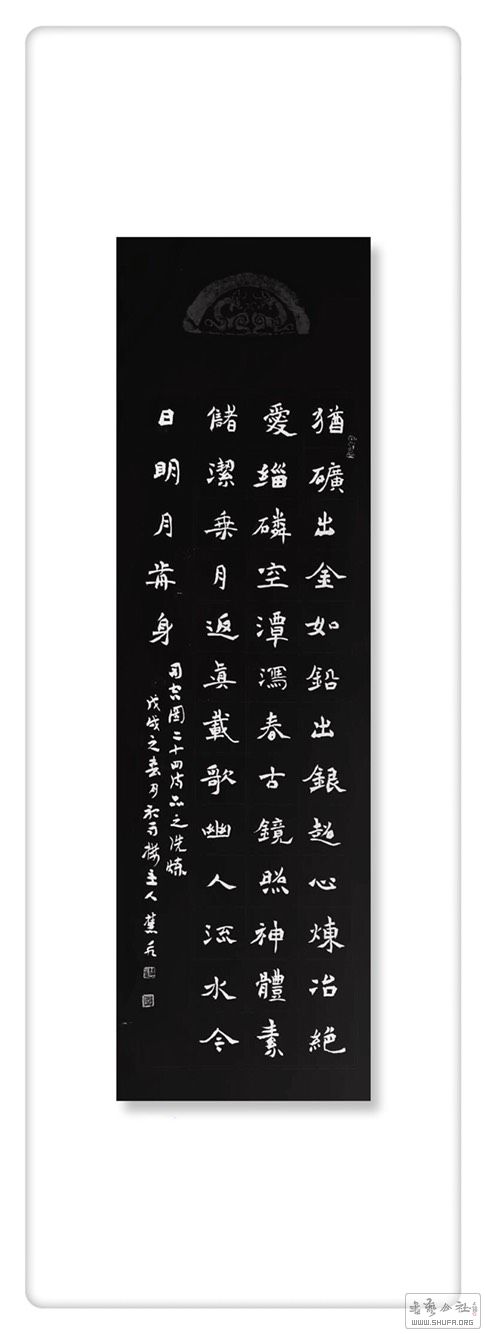 猶礦出金如鉛出銀超心煉冶絕
愛緇磷空潭瀉春古鏡照神體素
儲潔乘月返眞載歌幽人流水今
日明月前身
司空圖二十四诗品之洗煉
戊戌之春 樓主人
書藝公社
WWW.SHUFA.ORG